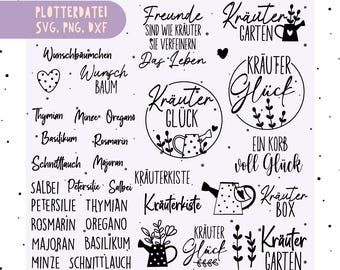 PLOTTERDATEI
SVG, PNG, DXF
Wunschbäumchen
Wunsch
BAUM
Freunde
SIND WIE KRÄUTER
SIE VERFEINERN
Das Leben
Kräuter
GARTEN
Kräuter
GLÜCK
KRÄUTER
Glück
Thymian
Minze
Oregano
Basilikum
Rosmarin
Schnittlauch
Majoran
EIN KORB
voll Glück
SALBEI
Petersilie
Salbei
PETERSILIE
THYMIAN
ROSMARIN
OREGANO
MAJORAN
BASILIKUM
MINZE
SCHNITTLAUCH
KRÄUTERKISTE
Kräuterkiste
Kräuter
BOX
KRÄUTER
Glück
Kräuter
GARTEN